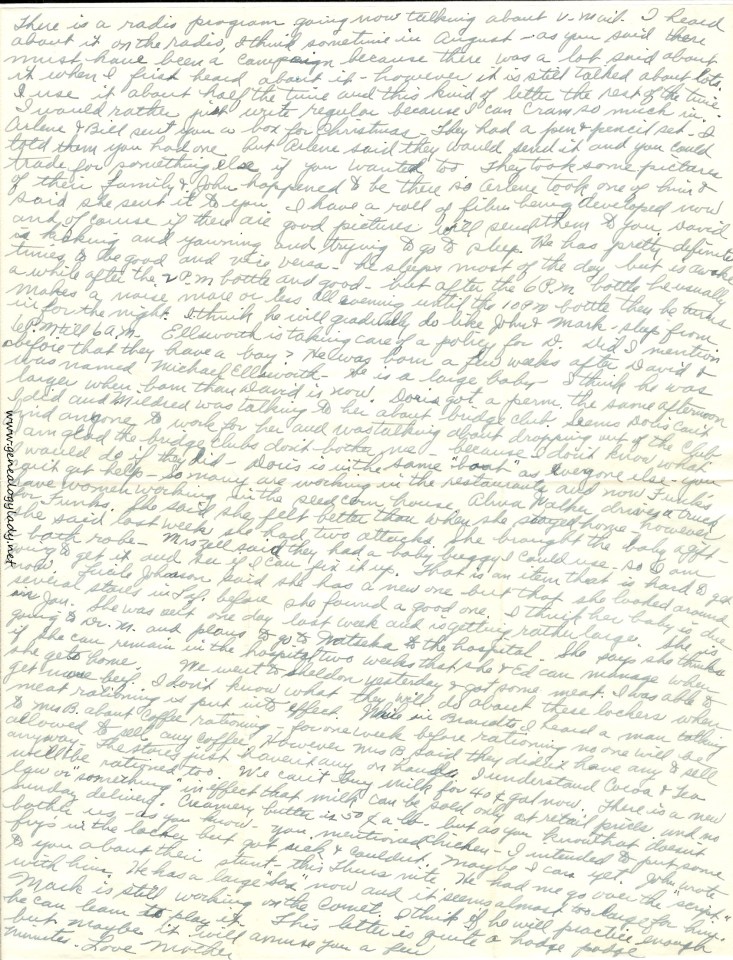 There is a radio program going now talking about V-mail. I heard
about it on the radio, I think sometime in August - as you said there
must have been a campaign because there was a lot said about
it when I first heard about it - however it is still talked about lots.
I use it about half the time and this kind of letter the rest of the time.
I would rather just write regular because I can cram so much in.
Arlene & Bill sent you a box for Christmas - They had a pen & pencil set - I
told them you had one but Arlene said they would send it and you could
trade for something else if you wanted to. They took some pictures
of their family & John happened to be there so Arlene took one of him &
said she sent it to you. I have a roll of film being developed now
and of course if there are good pictures I'll send them to you. David
is kicking and yawning and trying to go to sleep. He has pretty definite
times to be good and vice versa - he sleeps most of the day but is awake
a while after the 2 P.M bottle and good - but after the 6 P.M. bottle he usually
makes a noise more or less all evening until the 10 P.M bottle then he turns
in for the night. I think he will gradually do like John & Mark - sleep from
6 P.M till 6 A.M. Ellsworth is taking care of a policy for D. Did I mention
before that they have a boy? He was born a few weeks after David &
was named Michael Ellsworth. He is a large baby - I think he was
larger when born than David is now. Doris got a perm. the same afternoon
I did and Mildred was talking to her about bridge club. Seems Doris can't
find anyone to work for her and was talking about dropping out of the club.
I am glad the bridge clubs don't bother me - because I don't know what
I would do if they did - Doris is in the same "boat" as everyone else - you
can't get help - So many are working in the restaurants and now Funks
have women working in the seed corn house. Alma Walker drives a truck
for Funks. She said she felt better than when she stayed home however
she said last week she had two attacks. She brought the baby a gift -
a bath robe - Mrs Zell said they had a baby buggy I could use - so I am
going to get it and see if I can fix it up. That is an item that is hard to get
now. Lucile Johnson said she has a new one but that she looked around
several stores in Laf. before she found a good one. I think her baby is due
in Jan. She was out one day last week and is getting rather large. She is
going to Dr. M. and plans to go to Watseka to the hospital. She says she thinks
if she can remain in the hospital two weeks that she & Ed can manage when
she gets home. We went to Sheldon yesterday & got some meat. I was able to
get more beef. I don't know what they will do about these lockers when
meat rationing is put into effect. While in Brandts I heard a man talking
to Mrs B. about coffee rationing - for one week before rationing no one will be
allowed to sell any coffee. However Mrs B said they didn't have any to sell
anyway. The stores just haven't any on hand. I understand Cocoa & Tea
will be rationed too. We can't buy milk for 40 ¢ gal now. There is a new
law or "something" in effect that milk can be sold only at retail price and no
Sunday delivery. Creamery butter is 50 ¢ a lb - but as you know that doesn't
bother us - as you know - you mentioned chicken - I intended to put some
frys in the locker but got sick & couldn't. Maybe I can yet. John wrote
to you about their stunt - this Thurs nite. He had me go over the "script"
with him. He has a large now and it seems almost too large for him.
Mark is still working on the Cornet. I think if he will practice enough
he can learn to play it. This letter is quite a hodge podge
but maybe it will amuse you a few
minutes - Love Mother
www.genealogylady.net